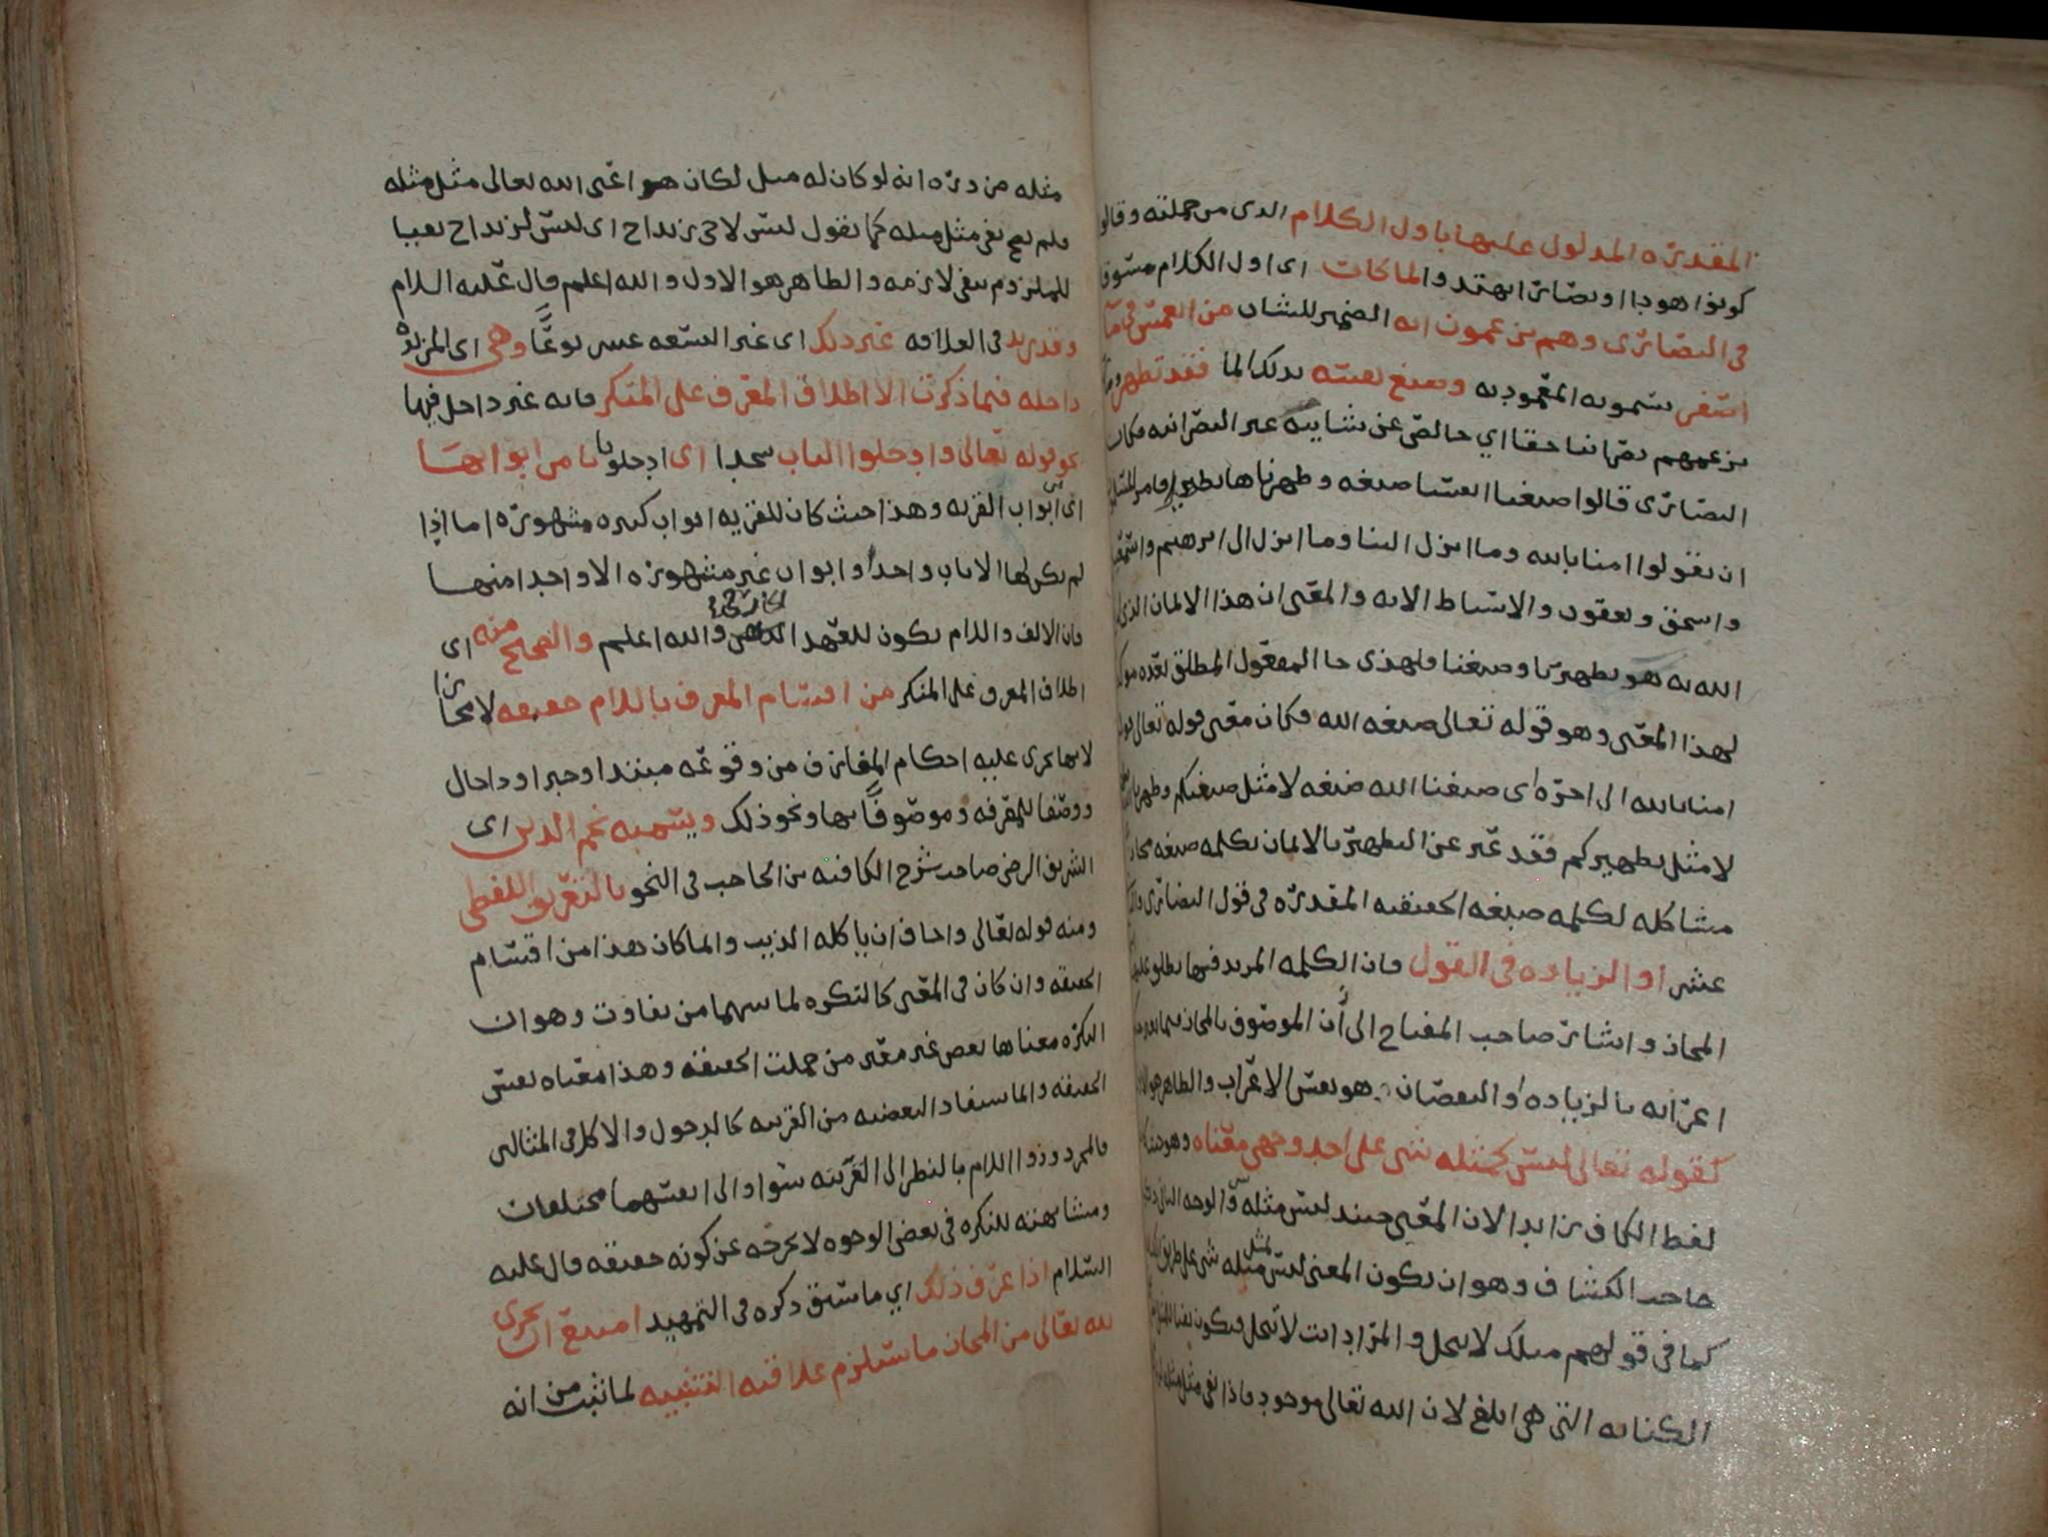 المقدره المدلول عليها باول الكلام الذي من جملته وقالوا
كونوا هودا او نصارى تهتدوا لما كانت اى اول الكلام مسوق
فى النصارى وهم يزعمون انه الضمير للشان من انغمس فى ماء
اصفر يسمونه المعموديه وصبغ نفسه بذلك الما فقد تطهر
بزعمهم نصرانيا حقا اي خالص عن شايبه غير النصرانيه فكان
النصارى قالوا صبغنا انفسنا صبغه وطهرناها تطهيرا فامر المسلمين
ان يقولوا امنا بالله وما انزل الينا وما انزل الى ابرهيم واسمعيل
واسحق ويعقوب والاسباط الايه والمعنى ان هذا الايمان الذي
الله به هو يطهرنا وصبغنا فلهذى جا المفعول المطلق بعده موكدا
لهذا المعنى وهو قوله تعالى صبغه الله فكان معنى قوله تعالى قولوا
امنا بالله الى اخره اى صبغنا الله صبغه لا مثل صبغتكم وطهرنا
لا مثل تطهيركم فقد عبر عن التطهير بالايمان بكلمه صبغه مجازا
مشاكله لكلمه صبغه الحقيقيه المقدره فى قول النصارى
عشر او الزياده فى القول فان الكلمه المزيد فيها يطلق عليها
المجاز واشار صاحب المفتاح الى أن الموصوف بالمجاز
اعرابه بالزياده او النقصان هو نفس الاعراب والظاهر هو الاول
كقوله تعالى ليس كمثله شى على احد وجهى معناه وهو حيث كان
لفظ الكاف زايدا لان المعنى حينئذ ليس مثله شى والوجه الثاني ذكره
صاحب الكشاف وهو ان يكون المعنى ليس مثل مثله شى على طريق الكنايه
كما فى قولهم مثلك لا يبخل والمراد انت لا تبخل فيكون
الكنايه التى هى ابلغ لان الله تعالى موجود فاذا نفى مثل مثله
مثله من دره انه لو كان له مثل لكان هو اعنى الله تعالى مثل مثله
فلم يصح نفى مثل مثله كما تقول ليس لاخى زيد اخ اى ليس لزيد اخ نفيا
للملزوم بنفى لازمه والظاهر هو الاول والله اعلم قال عليه السلام
وقد زيد فى العلاقه غير ذلك اى غير التسعه عشر نوعًا وهى اى المزيده
داخله فيما ذكرت الا اطلاق المعرف على المنكر فانه غير داخل فيها
نحو قوله تعالى وادخلوا الباب سجدا اى ادخلوا بابا من ابوابها
اى ابواب القريه وهذا حيث كان للقريه ابواب كثيره مشهوره اما اذا
لم يكن لها الا باب واحدا وابواب غير مشهوره الا واحدا منها
فان الالف واللام يكون للعهد الخارجى والله اعلم والصحيح منه اى
اطلاق المعرف على المنكر من اقسام المعرف باللام حقيقه لا مجازا
لانها يجرى عليه احكام المعارف من وقوعه مبتدا وخبرا وذا حال
ووصفا للمعرفه وموصوفًا بها ونحو ذلك ويسميه نجم الدين اى
الشريف الرضى صاحب شرح الكافيه بن الحاجب فى النحو بالتعريف اللفظى
ومنه قوله تعالى واخاف ان ياكله الذيب والما كان هذا من اقسام
الحقيقه وان كان فى المعنى كالنكره لما بينهما من تفاوت وهو ان
النكره معناها بعض غير معين من جملت الحقيقه وهذا معناه نفس
الحقيقه وانما يستفاد البعضيه من القرينه كالدخول والاكل فى المثالين
فالمجرد وذو اللام بالنظر الى القرينه سوا والى انفسهما مختلفان
ومشابهته للنكره فى بعض الوجوه لا يخرجه عن كونه حقيقه قال عليه
السلام اذا عرف ذلك اي ما سبق ذكره فى التمهيد امتنع ان يجرى
لله تعالى من المجاز ما يستلزم علاقته التشبيه لما ثبت من انه